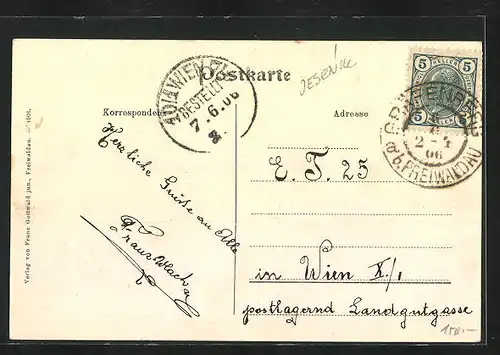 Postkarte
Jesenik
5 HELLER 5
5 5
GRÄFENBERG
6
2-4
06
b. FREIWALDAU
WIEN
BESTELLT
7.6.06
Korrespondenz
Adresse
Herzliche Grüße an Alle
Franz
E. T. 25
in Wien X/1
postlagernd Landgutgasse
150.-
Verlag von Franz Gottwald jun., Freiwaldau. 1906.